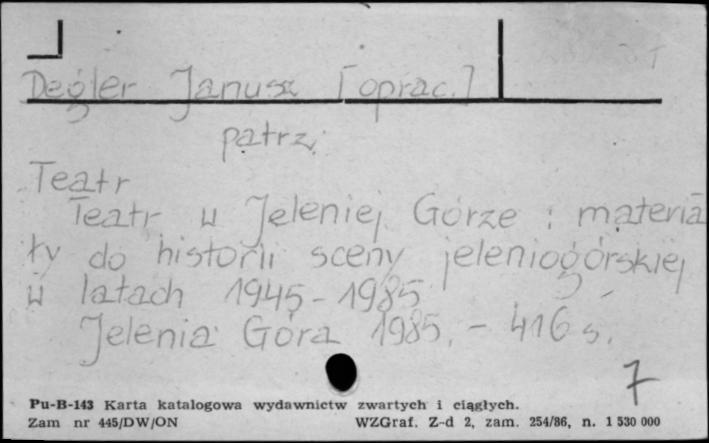 Degler Janusz [oprac.]
patrz:
Teatr
Teatr w Jeleniej Górze : materia
ły do historii sceny jeleniogórskiej
w latach 1945-1985
Jelenia Góra 1985. - 416 s.
7
Pu-B-143 Karta katalogowa wydawnictw zwartych i ciągłych.
Zam nr 445/DW/ON WZGraf. Z-d 2, zam. 254/86, n. 1 530 000